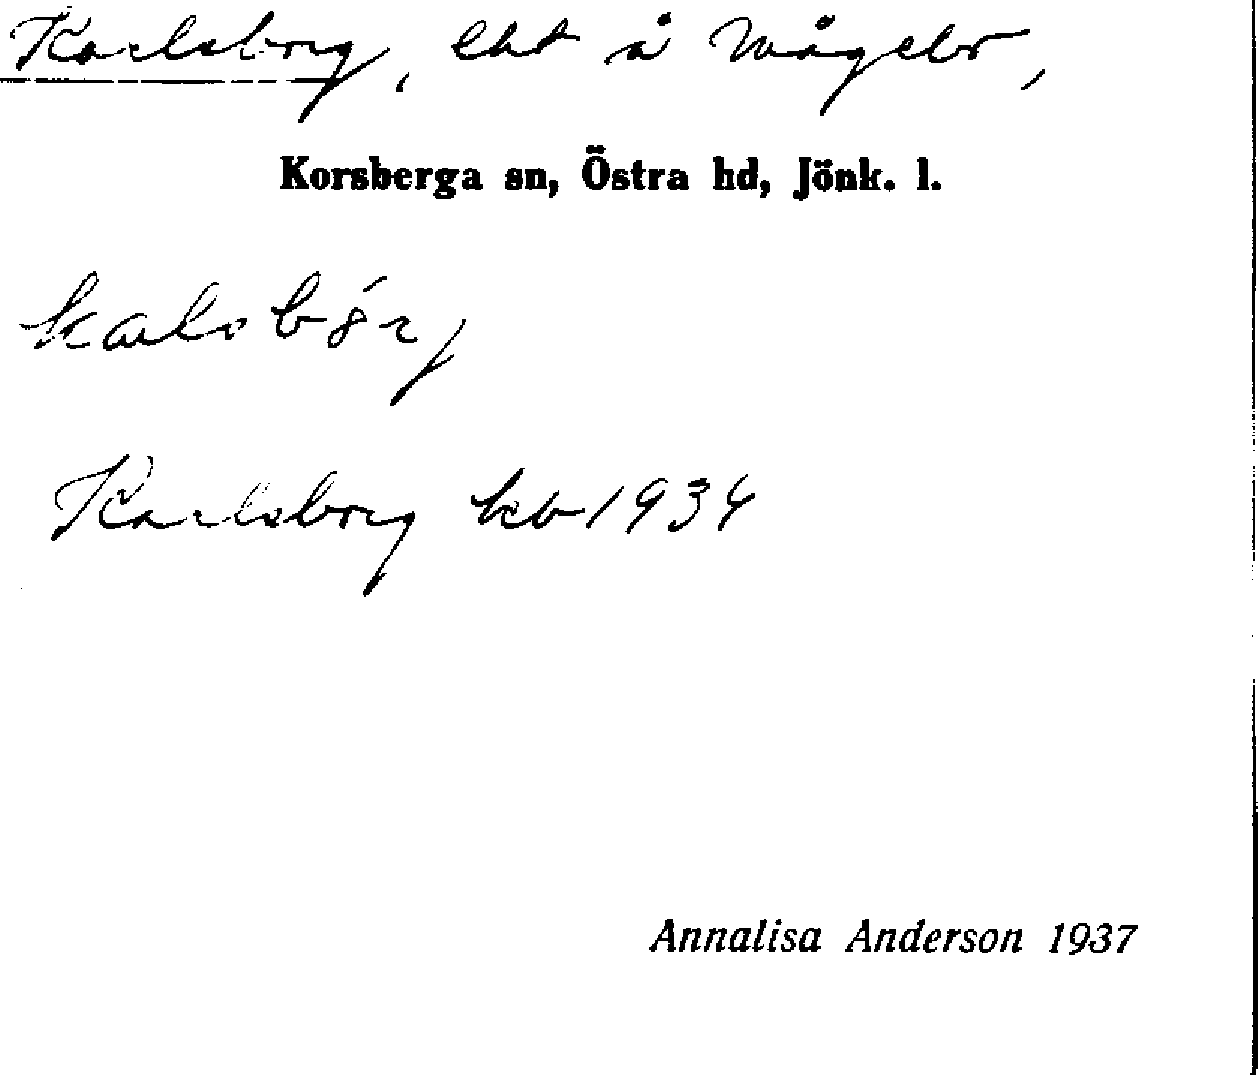 Karlsborg, lht å Mågebo,
Korsberga sn, Östra hd, Jönk. l.
Karlsborg kb 1934
Annalisa Anderson 1937